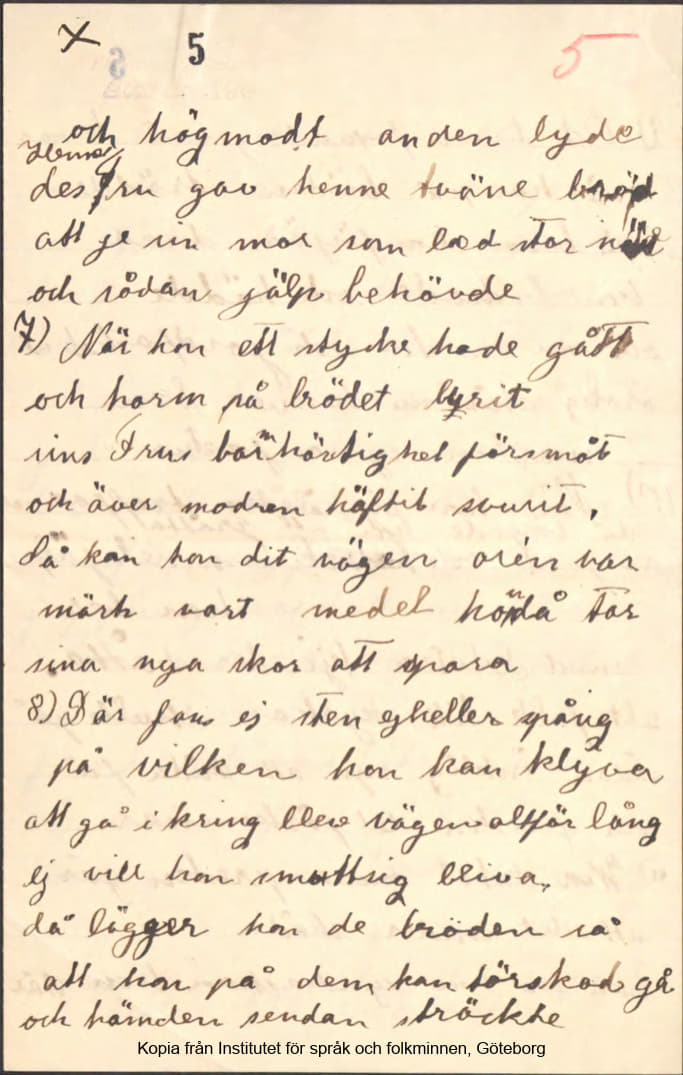 x 5 5
och högmodit anden lyde
Hennes
des fru gav henne tväne bröd
att je sin mor som led stor nöd
och sådan jälp behövde
7) När hon ett stycke hade gått
och harm på brödet byrit
sins Frus barihärtighet försmåt
och över modren häftit svurit.
Så kan hon dit vägen oren var
märk vart medel hon då tar
sina nya skor att spara
8) Där fans ej sten ejheller spång
på vilken hon kan klyva
att gå i kring blev vägen altför lång
ej vill hon smuttsig bliva,
då lägger hon de bröden så
att hon på dem kan törskod gå
och hämden sendan sträckte
Kopia från Institutet för språk och folkminnen, Göteborg